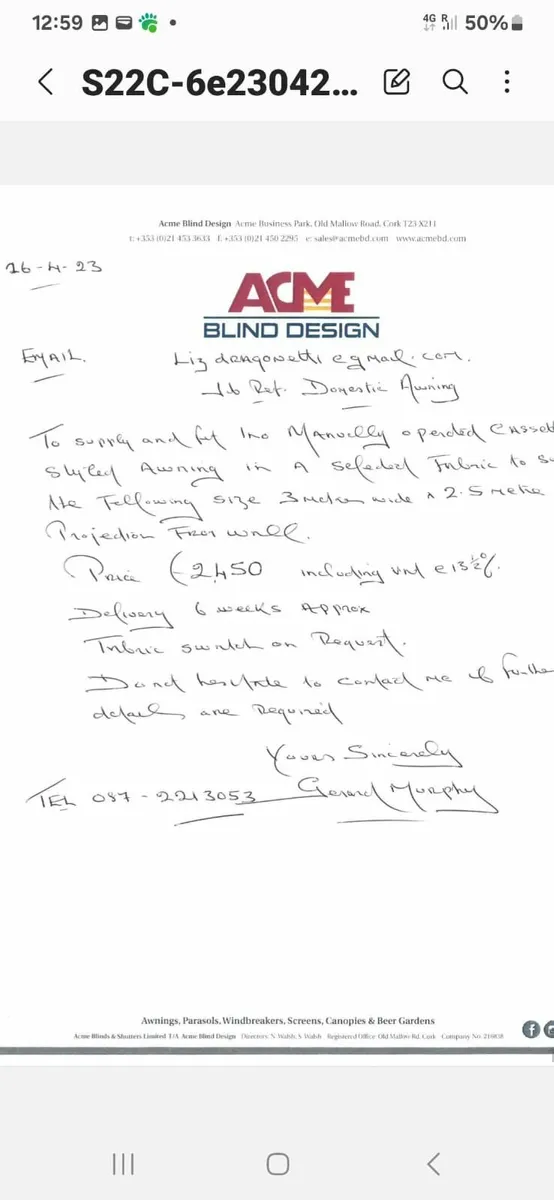 12:59
4G R 50%
S22C-6e23042...
Acme Blind Design Acme Business Park, Old Mallow Road, Cork T23 X211
t: +353 (0)21 453 3633 f: +353 (0)21 450 2295 e: sales@acmebd.com www.acmebd.com
16-4-23
ACME
BLIND DESIGN
EMAIL. Liz dragonetti @ gmail.com.
Job Ref. Domestic Awning
To supply and fit one Manually operated Casset
Styled Awning in a selected Fabric to su
the Following size 3 metres wide x 2.5 metre
Projection From wall.
Price €2,450 including vat @ 13½%.
Delivery 6 weeks Approx
Fabric swatch on Request.
Do not hesitate to contact me if further
details are Required
Yours Sincerely
TEL 087-2213053 Gerard Murphy
Awnings, Parasols, Windbreakers, Screens, Canopies & Beer Gardens
Acme Blinds & Shutters Limited T/A Acme Blind Design Directors: N. Walsh, S. Walsh Registered Office: Old Mallow Rd, Cork Company No.